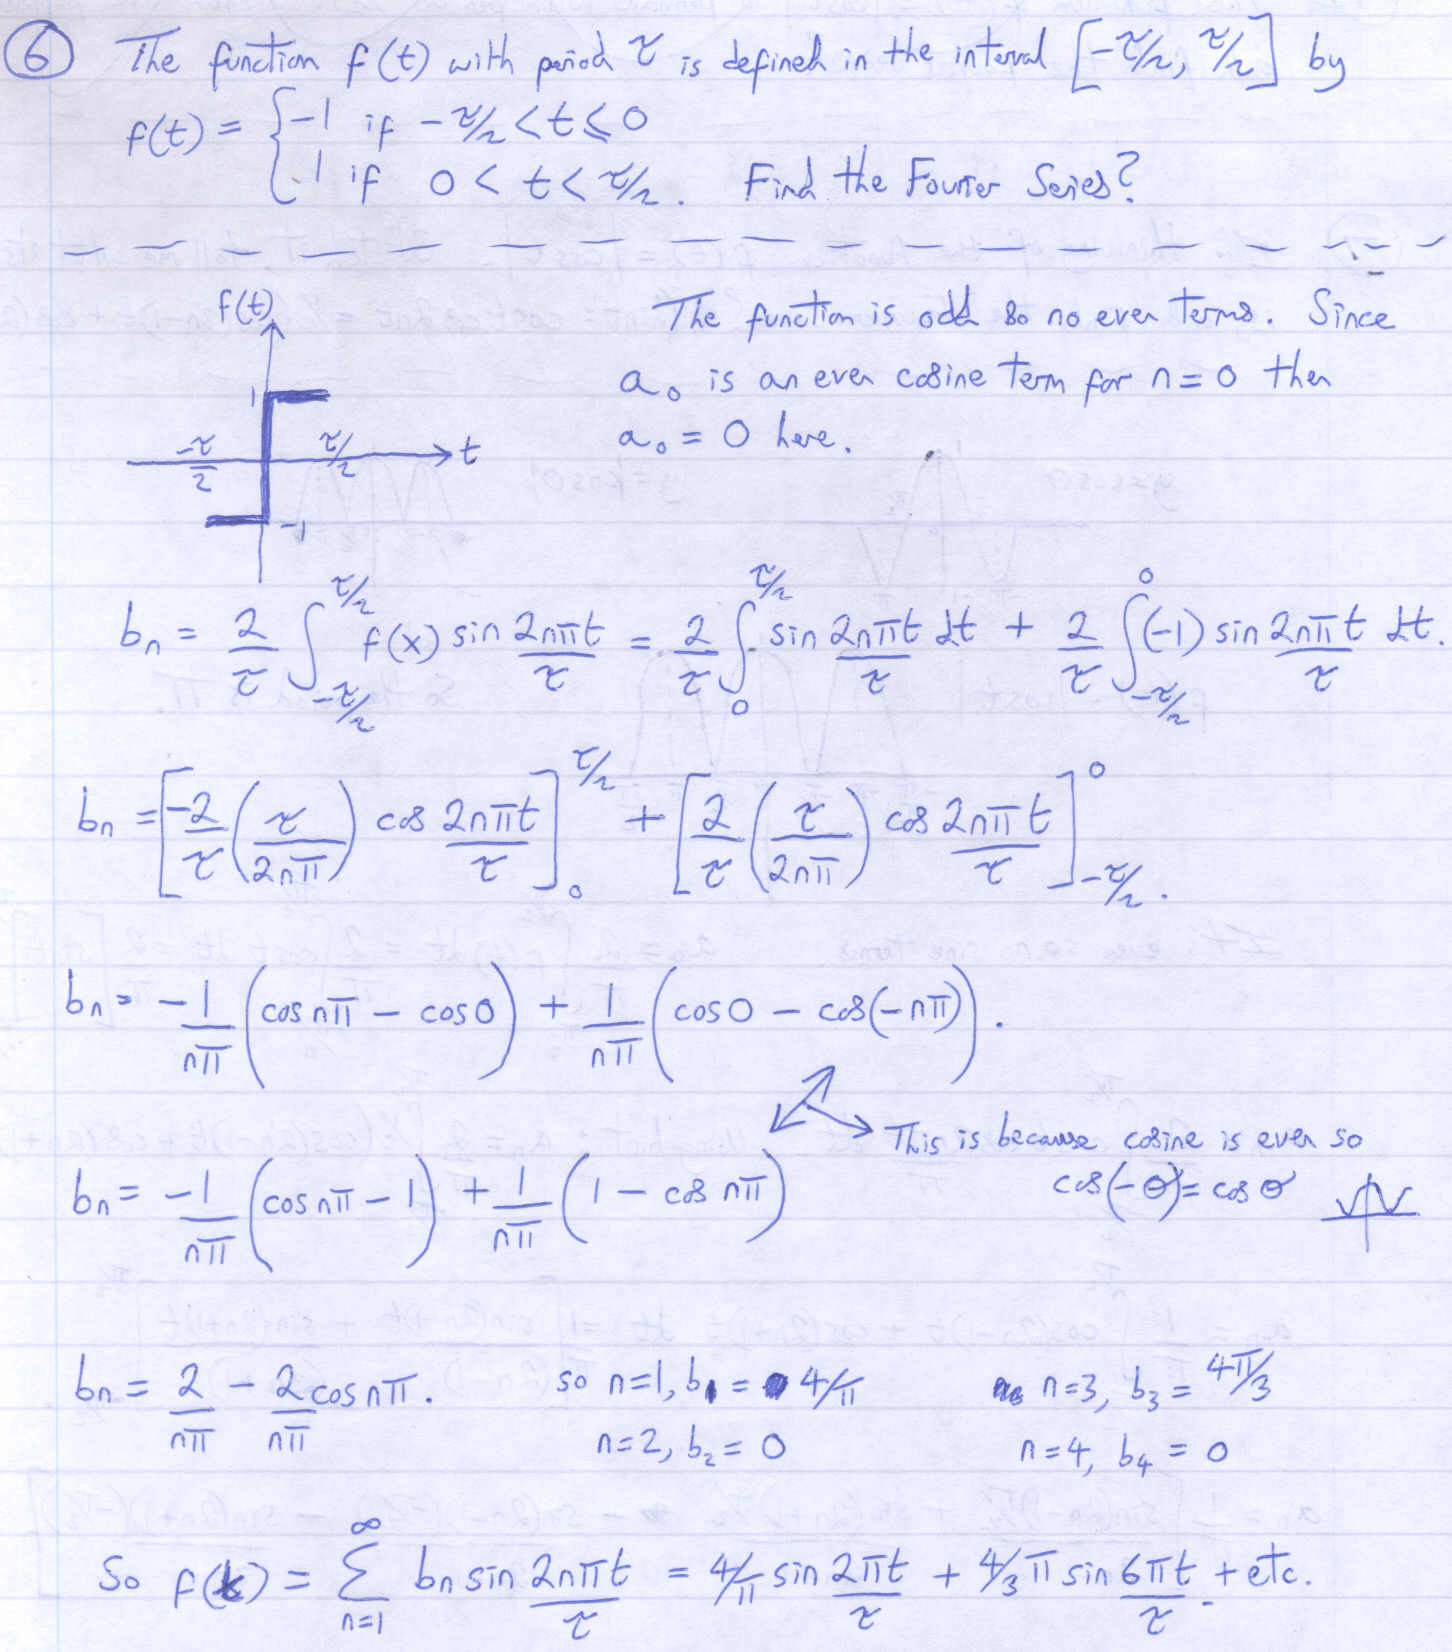 ⑥ The function f(t) with period τ is defined in the interval [-τ/2, τ/2] by
f(t) = { -1 if -τ/2 < t ≤ 0
1 if 0 < t < τ/2. Find the Fourier Series?
f(t)
The function is odd so no even terms. Since
a₀ is an even cosine term for n = 0 then
a₀ = 0 here.
1
-τ/2
τ/2
t
-1
bn = 2/τ ∫_{-τ/2}^{τ/2} f(x) sin 2nπt/τ = 2/τ ∫_0^{τ/2} sin 2nπt/τ dt + 2/τ ∫_{-τ/2}^0 (-1) sin 2nπt/τ dt.
bn = [-2/τ (τ/2nπ) cos 2nπt/τ]_0^{τ/2} + [2/τ (τ/2nπ) cos 2nπt/τ]_{-τ/2}^0.
bn = -1/nπ (cos nπ - cos 0) + 1/nπ (cos 0 - cos(-nπ)).
This is because cosine is even so
cos(-θ) = cos θ
bn = -1/nπ (cos nπ - 1) + 1/nπ (1 - cos nπ)
bn = 2/nπ - 2/nπ cos nπ. so n=1, b₁ = 4/π n=3, b₃ = 4π/3
n=2, b₂ = 0 n=4, b₄ = 0
So f(t) = ∑_{n=1}^∞ bn sin 2nπt/τ = 4/π sin 2πt/τ + 4/3 π sin 6πt/τ + etc.